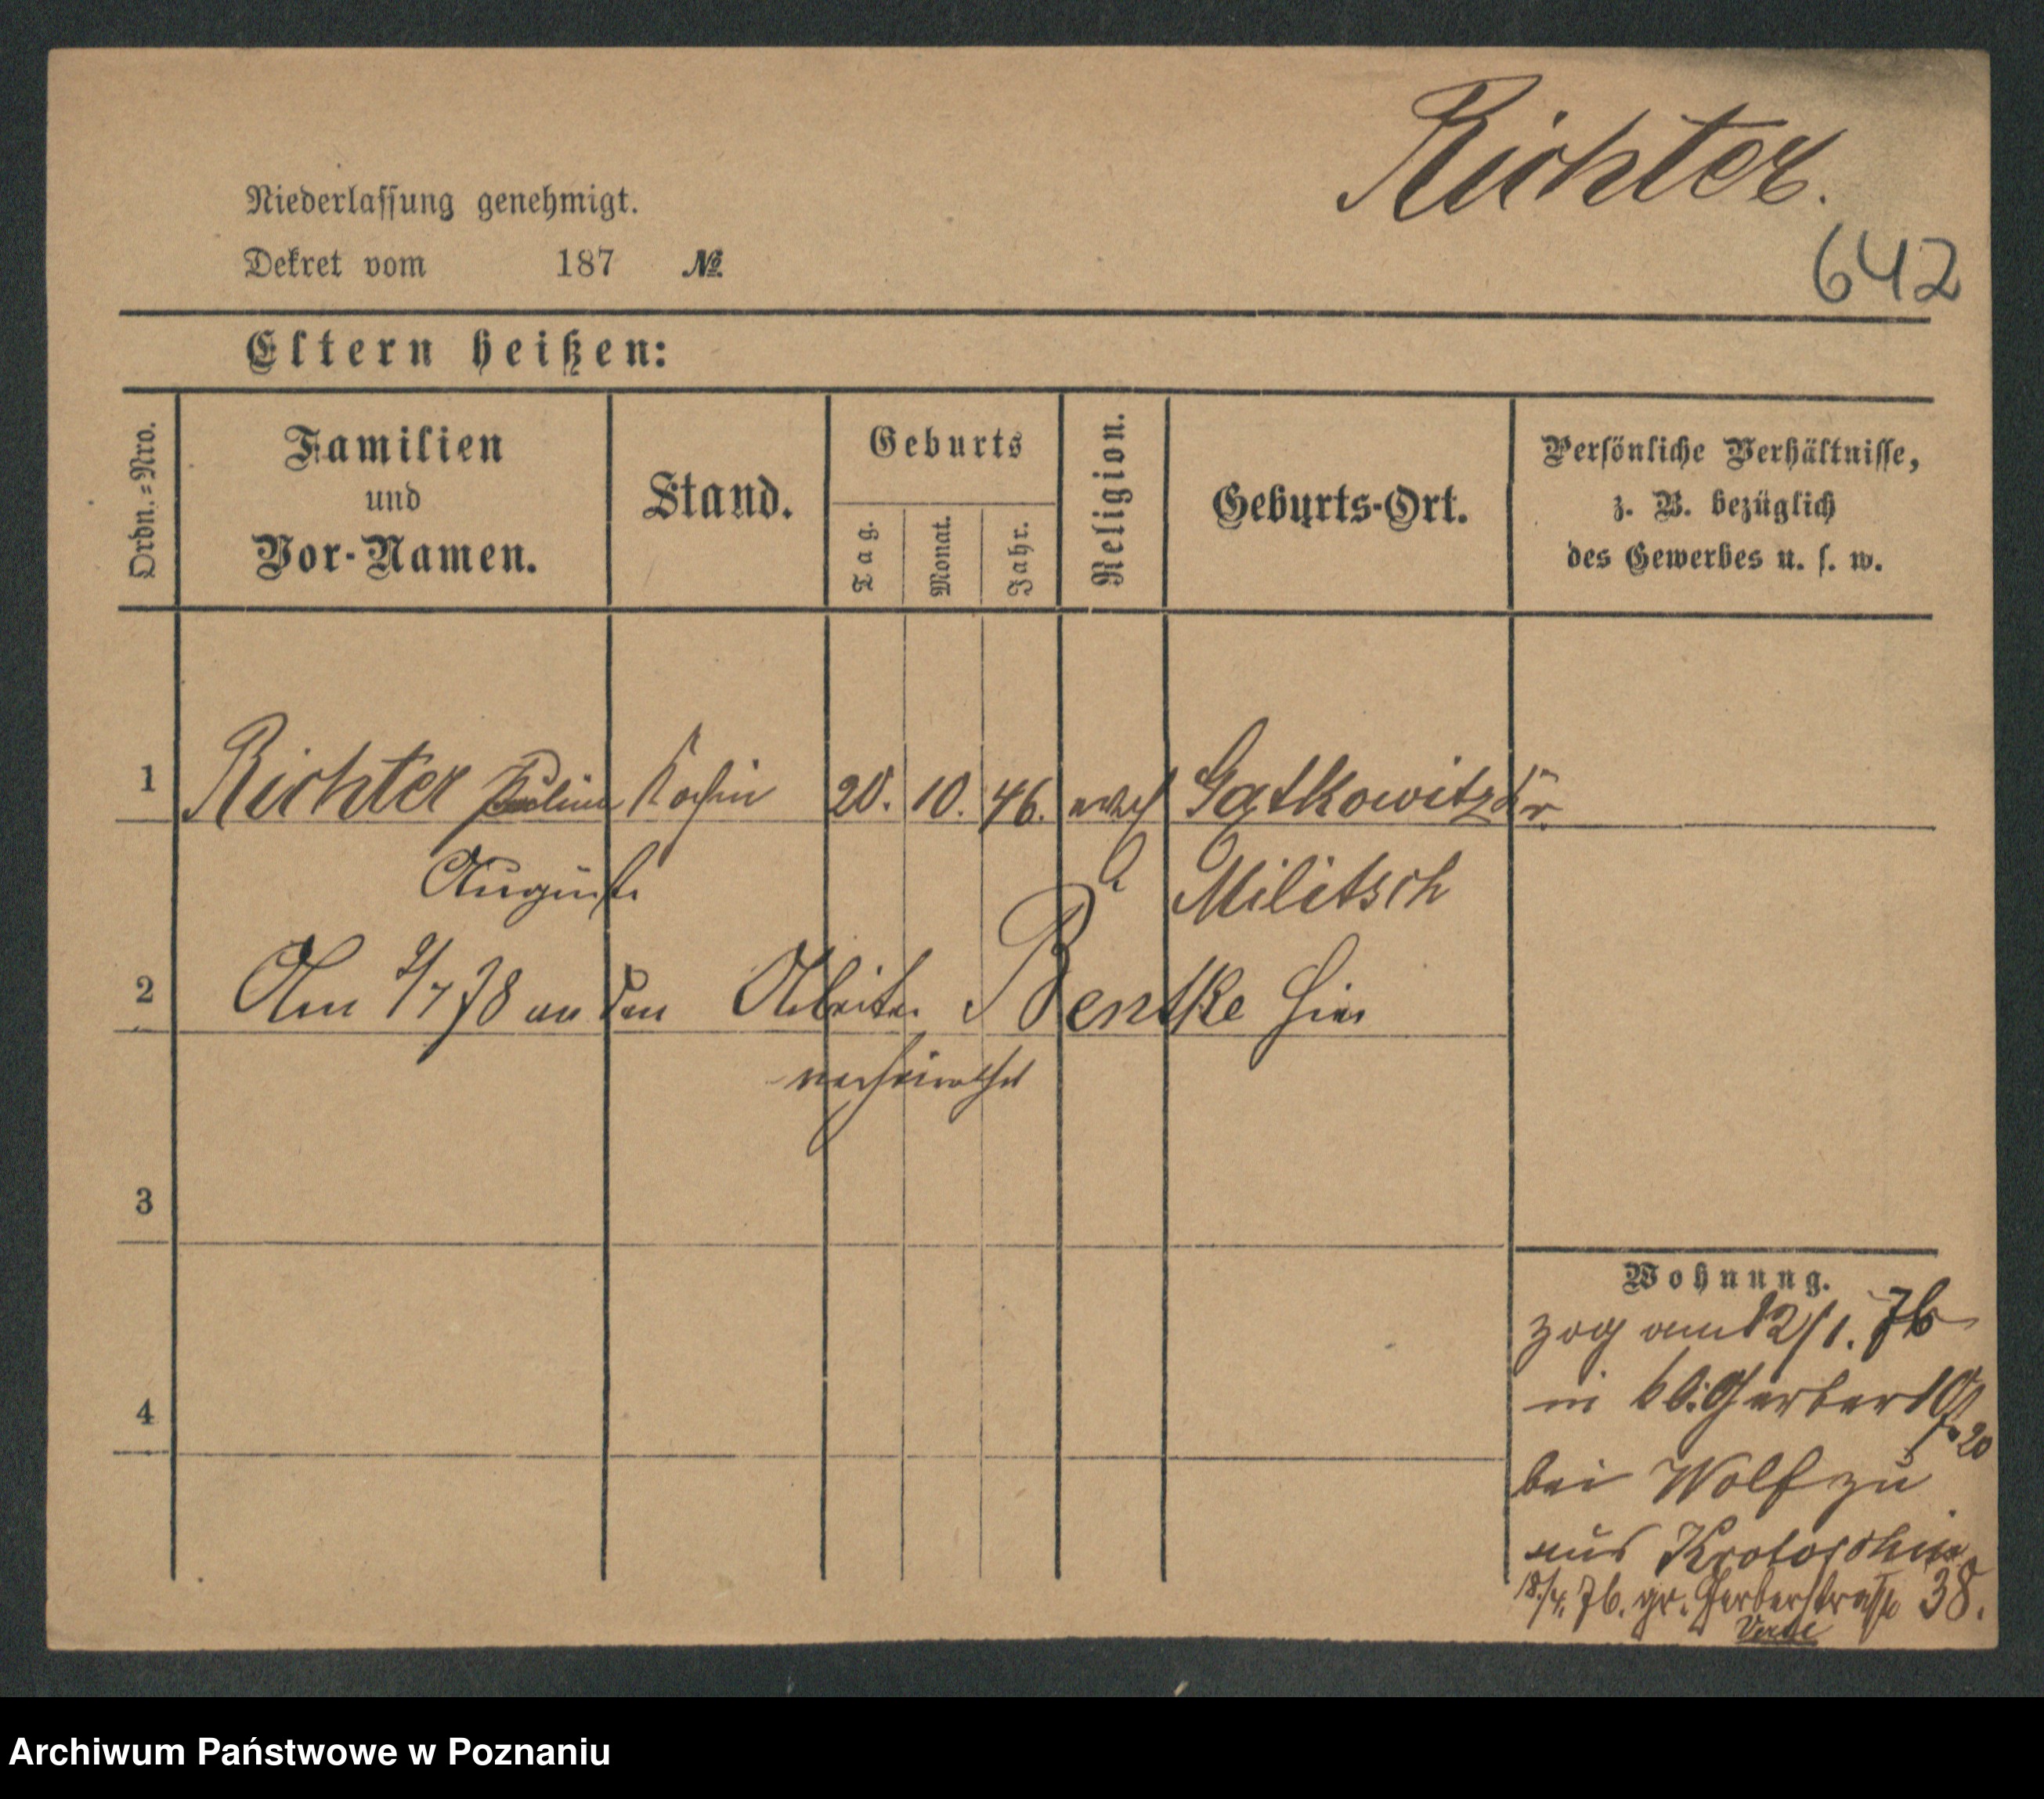 Richter.
642
Niederlassung genehmigt.
Dekret vom 187 №
Eltern heißen:
Ordn.=Nro.
Familien
und
Vor-Namen.
Stand.
Geburts
Tag.
Monat.
Jahr.
Religion.
Geburts-Ort.
Persönliche Verhältnisse,
z. B. bezüglich
des Gewerbes u. s. w.
1 Richter Pauline Köchin 20. 10. 46. Gatkowitz Kr.
Auguste Militsch
2 Am 2/7 78 an den Arbeiter Bentke hier
verheirathet
3
4
Wohnung.
zog am 12/1. 76
in kl. Gerber
20
bei Wolf zu
aus Krotoschin
18/4. 76. gr. Gerberstraße 38.
Archiwum Państwowe w Poznaniu